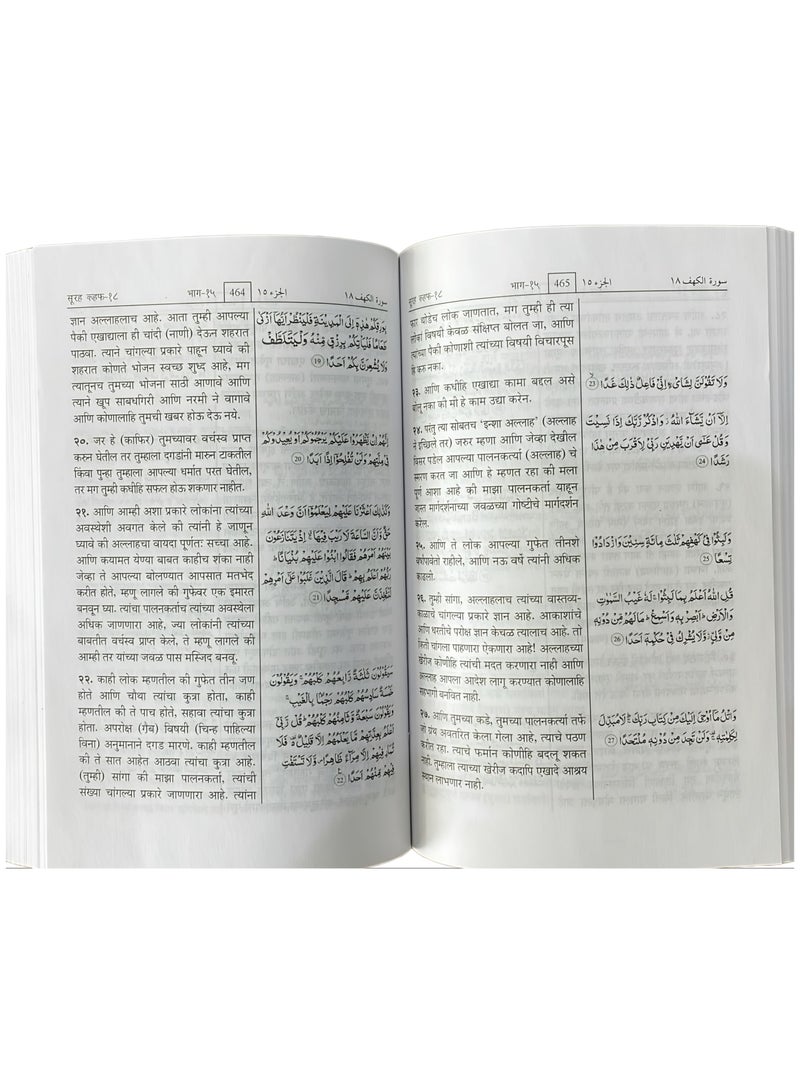 सूरह कहफ-१८ भाग-१५ 464 الجزء ١٥ سورة الكهف ١٨
ज्ञान अल्लाहलाच आहे. आता तुम्ही आपल्या
पैकी एखाद्याला ही चांदी (नाणी) देऊन शहरात
पाठवा. त्याने चांगल्या प्रकारे पाहून घ्यावे की
शहरात कोणते भोजन स्वच्छ शुध्द आहे, मग
त्यातूनच तुमच्या भोजना साठी आणावे आणि
त्याने खूप सावधगिरी आणि नरमी ने वागावे
आणि कोणालाहि तुमची खबर होऊ देऊ नये.
२०. जर हे (काफिर) तुमच्यावर वर्चस्व प्राप्त
करुन घेतील तर तुम्हाला दगडांनी मारुन टाकतील
किंवा पुन्हा तुम्हाला आपल्या धर्मात परत घेतील,
तर मग तुम्ही कधीहि सफल होऊ शकणार नाहीत.
२१. आणि आम्ही अशा प्रकारे लोकांना त्यांच्या
अवस्थेशी अवगत केले की त्यांनी हे जाणून
घ्यावे की अल्लाहचा वायदा पूर्णतः सच्चा आहे.
आणि कयामत येण्या बाबत काहीच शंका नाही
जेव्हा ते आपल्या बोलण्यात आपसात मतभेद
करीत होते, म्हणू लागले की गुफेवर एक इमारत
बनवून घ्या. त्यांचा पालनकर्ताच त्यांच्या अवस्थेला
अधिक जाणणारा आहे, ज्या लोकांनी त्यांच्या
बाबतीत वर्चस्व प्राप्त केले, ते म्हणू लागले की
आम्ही तर यांच्या जवळ पास मस्जिद बनवू.
२२. काही लोक म्हणतील की गुफेत तीन जण
होते आणि चौथा त्यांचा कुत्रा होता, काही
म्हणतील की ते पाच होते, सहावा त्यांचा कुत्रा
होता. अपरोक्ष (गैब) विषयी (चिन्ह पाहिल्या
विना) अनुमानाने दगड मारणे. काही म्हणतील
की ते सात आहेत आठवा त्यांचा कुत्रा आहे.
(तुम्ही) सांगा की माझा पालनकर्ता, त्यांची
संख्या चांगल्या प्रकारे जाणणारा आहे. त्यांना
بِوَرِقِكُمْ هٰذِهٖٓ اِلَى الْمَدِيْنَةِ فَلْيَنْظُرْ اَيُّهَآ اَزْكٰى
طَعَامًا فَلْيَاْتِكُمْ بِرِزْقٍ مِّنْهُ وَلْيَتَلَطَّفْ
وَلَا يُشْعِرَنَّ بِكُمْ اَحَدًا 19
اِنَّهُمْ اِنْ يَّظْهَرُوْا عَلَيْكُمْ يَرْجُمُوْكُمْ اَوْ يُعِيْدُوْكُمْ
فِيْ مِلَّتِهِمْ وَلَنْ تُفْلِحُوْٓا اِذًا اَبَدًا 20
وَكَذٰلِكَ اَعْثَرْنَا عَلَيْهِمْ لِيَعْلَمُوْٓا اَنَّ وَعْدَ اللّٰهِ
حَقٌّ وَّاَنَّ السَّاعَةَ لَا رَيْبَ فِيْهَا اِذْ يَتَنَازَعُوْنَ
بَيْنَهُمْ اَمْرَهُمْ فَقَالُوا ابْنُوْا عَلَيْهِمْ بُنْيَانًا
رَبُّهُمْ اَعْلَمُ بِهِمْ قَالَ الَّذِيْنَ غَلَبُوْا عَلٰٓى اَمْرِهِمْ
لَنَتَّخِذَنَّ عَلَيْهِمْ مَّسْجِدًا 21
سَيَقُوْلُوْنَ ثَلٰثَةٌ رَّابِعُهُمْ كَلْبُهُمْ وَيَقُوْلُوْنَ
خَمْسَةٌ سَادِسُهُمْ كَلْبُهُمْ رَجْمًا بِالْغَيْبِ
وَيَقُوْلُوْنَ سَبْعَةٌ وَّثَامِنُهُمْ كَلْبُهُمْ قُلْ رَّبِّيْٓ
اَعْلَمُ بِعِدَّتِهِمْ مَّا يَعْلَمُهُمْ اِلَّا قَلِيْلٌ فَلَا
تُمَارِ فِيْهِمْ اِلَّا مِرَآءً ظَاهِرًا وَّلَا تَسْتَفْتِ
فِيْهِمْ مِّنْهُمْ اَحَدًا 22
सूरह कहफ-१८ भाग-१५ 465 الجزء ١٥ سورة الكهف ١٨
फार थोडेच लोक जाणतात, मग तुम्ही ही त्या
लोकां विषयी केवळ संक्षिप्त बोलत जा, आणि
त्यांच्या पैकी कोणाशी त्यांच्या विषयी विचारपूस
ही करु नका.
२३. आणि कधीहि एखाद्या कामा बद्दल असे
बोलू नका की मी हे काम उद्या करेन.
२४. परंतु त्या सोबतच 'इन्शा अल्लाह' (अल्लाह
ने इच्छिले तर) जरुर म्हणा आणि जेव्हा देखील
विसर पडेल आपल्या पालनकर्त्या (अल्लाह) चे
स्मरण करत जा आणि हे म्हणत रहा की मला
पूर्ण आशा आहे की माझा पालनकर्ता याहून
जास्त मार्गदर्शनाच्या जवळच्या गोष्टीचे मार्गदर्शन
करेल.
२५. आणि ते लोक आपल्या गुफेत तीनशे
वर्षापावेतो राहीले, आणि नऊ वर्षे त्यांनी अधिक
काढली.
२६. तुम्ही सांगा, अल्लाहलाच त्यांच्या वास्तव्य-
काळाचे चांगल्या प्रकारे ज्ञान आहे. आकाशांचे
आणि धरतीचे परोक्ष ज्ञान केवळ त्यालाच आहे. तो
किती चांगला पाहाणारा ऐकणारा आहे! अल्लाहच्या
खेरीज कोणीहि त्यांची मदत करणारा नाही आणि
अल्लाह आपला आदेश लागू करण्यात कोणालाहि
सहभागी बनवित नाही.
२७. आणि तुमच्या कडे, तुमच्या पालनकर्त्या तर्फे
जो ग्रंथ अवतरित केला गेला आहे, त्याचे पठण
करीत रहा. त्याचे फर्मान कोणीहि बदलू शकत
नाही. तुम्हाला त्याच्या खेरीज कदापि एखादे आश्रय
स्थान लाभणार नाही.
وَلَا تَقُوْلَنَّ لِشَايْءٍ اِنِّيْ فَاعِلٌ ذٰلِكَ غَدًا 23
اِلَّآ اَنْ يَّشَآءَ اللّٰهُ وَاذْكُرْ رَّبَّكَ اِذَا نَسِيْتَ
وَقُلْ عَسٰٓى اَنْ يَّهْدِيَنِ رَبِّيْ لِاَقْرَبَ مِنْ هٰذَا
رَشَدًا 24
وَلَبِثُوْا فِيْ كَهْفِهِمْ ثَلٰثَ مِائَةٍ سِنِيْنَ وَازْدَادُوْا
تِسْعًا 25
قُلِ اللّٰهُ اَعْلَمُ بِمَا لَبِثُوْا لَهٗ غَيْبُ السَّمٰوٰتِ
وَالْاَرْضِ اَبْصِرْ بِهٖ وَاَسْمِعْ مَا لَهُمْ مِّنْ دُوْنِهٖ
مِنْ وَّلِيٍّ وَّلَا يُشْرِكُ فِيْ حُكْمِهٖٓ اَحَدًا 26
وَاتْلُ مَآ اُوْحِيَ اِلَيْكَ مِنْ كِتَابِ رَبِّكَ لَا مُبَدِّلَ
لِكَلِمٰتِهٖ وَلَنْ تَجِدَ مِنْ دُوْنِهٖ مُلْتَحَدًا 27